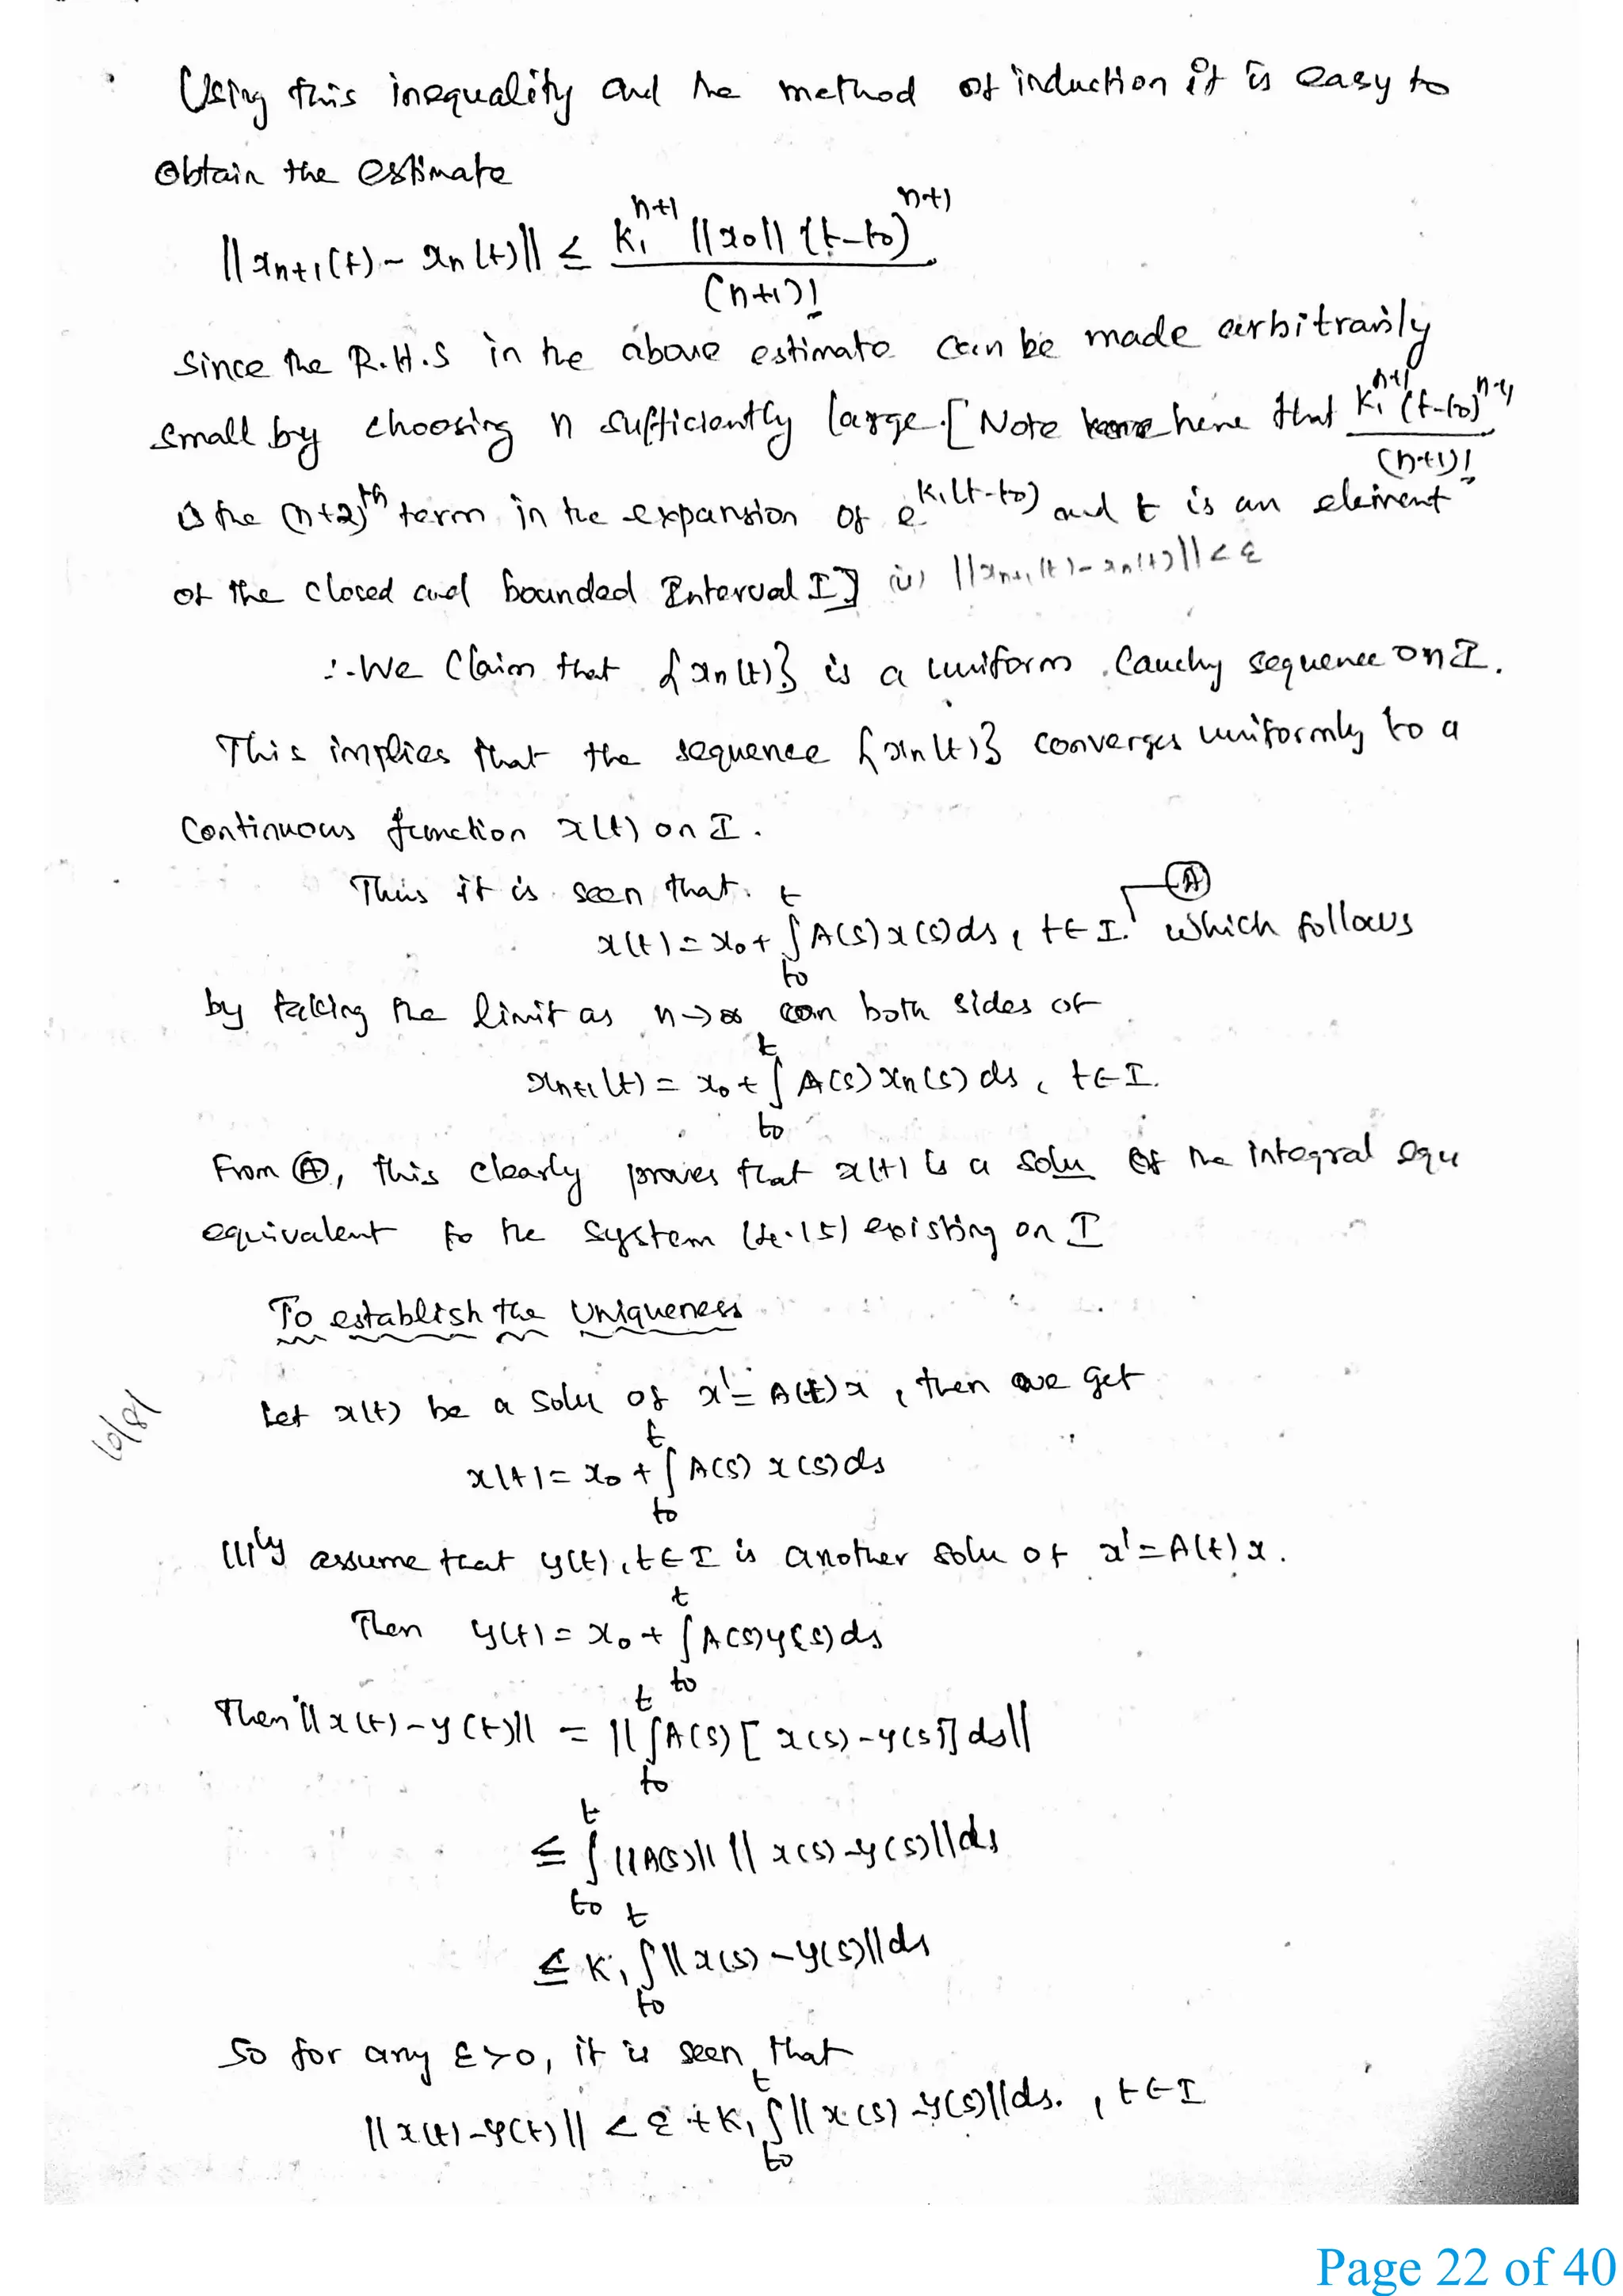 Using this inequality and the method of induction it is easy to
obtain the estimate
||xn+1(t) - xn(t)|| ≤ K₁^(n+1) ||x0|| (t-t0)^(n+1) / (n+1)!
Since the R.H.S in the above estimate can be made arbitrarily
small by choosing n sufficiently large. [Note here that K₁^(n+1) (t-t0)^(n+1) / (n+1)!
is the (n+2)th term in the expansion of e^(K₁(t-t0)) and t is an element
of the closed and bounded Interval I] (ii) ||xn+1(t) - xn(t)|| < ε
∴ We Claim that {xn(t)} is a uniform Cauchy sequence on I.
This implies that the sequence {xn(t)} converges uniformly to a
Continuous function x(t) on I.
Thus it is seen that
x(t) = x0 + ∫_{t0}^{t} A(s) x(s) ds, t∈I. Ⓐ which follows
by taking the limit as n→∞ on both sides of
xn+1(t) = x0 + ∫_{t0}^{t} A(s) xn(s) ds, t∈I.
From Ⓐ, this clearly proves that x(t) is a soln of the integral equ
equivalent to the system (4.15) existing on I
To establish the Uniqueness
Let x(t) be a soln of x' = A(t)x, then we get
x(t) = x0 + ∫_{t0}^{t} A(s) x(s) ds
|||ly assume that y(t), t∈I is another soln of x' = A(t)x.
Then y(t) = x0 + ∫_{t0}^{t} A(s) y(s) ds
Then ||x(t) - y(t)|| = ||∫_{t0}^{t} A(s) [x(s) - y(s)] ds||
≤ ∫_{t0}^{t} ||A(s)|| ||x(s) - y(s)|| ds
≤ K₁ ∫_{t0}^{t} ||x(s) - y(s)|| ds
So for any ε>0, it is seen that
||x(t) - y(t)|| < ε + K₁ ∫_{t0}^{t} ||x(s) - y(s)|| ds. , t∈I
Page 22 of 40